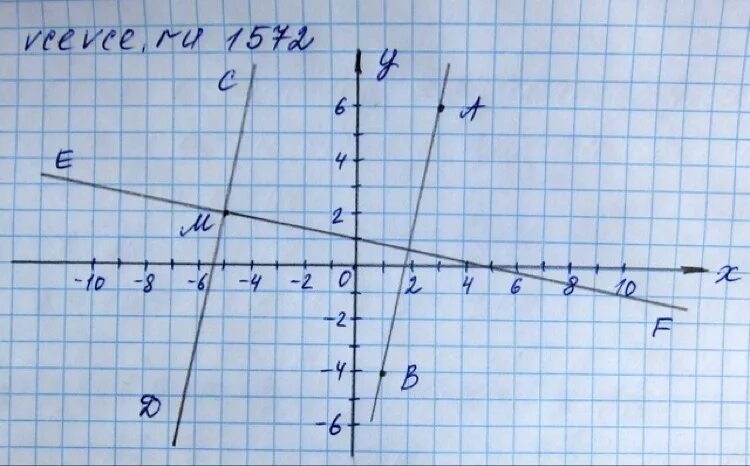 vcevce.ru 1572
C
y
6
A
E
4
M
2
-10 -8 -6 -4 -2 0 2 4 6 8 10 x
-2
F
-4
B
D
-6